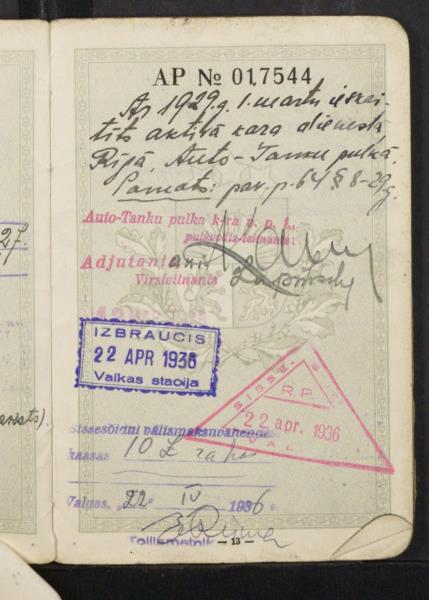 27.
AP № 017544
Ar 1929.g. 1. martu ieskai-
tīts aktīvā kara dienestā
Rīgā, Auto-Tanku pulkā.
Pamats: pav. p. 64 § 8-29g.
Auto-Tanku pulka k-ra v. p. i.,
pulkvedis-leitnants:
Adjutants
Virsleitnants
IZBRAUCIS
22 APR 1936
Valkas stacija
SISSE.
R.P.
22 apr. 1936
VAL
Sissesõidul välismaksuvahendeid
kaasas 10 £ raha
Valgas, „22" IV 1936
Tolliametnik
— 13 —